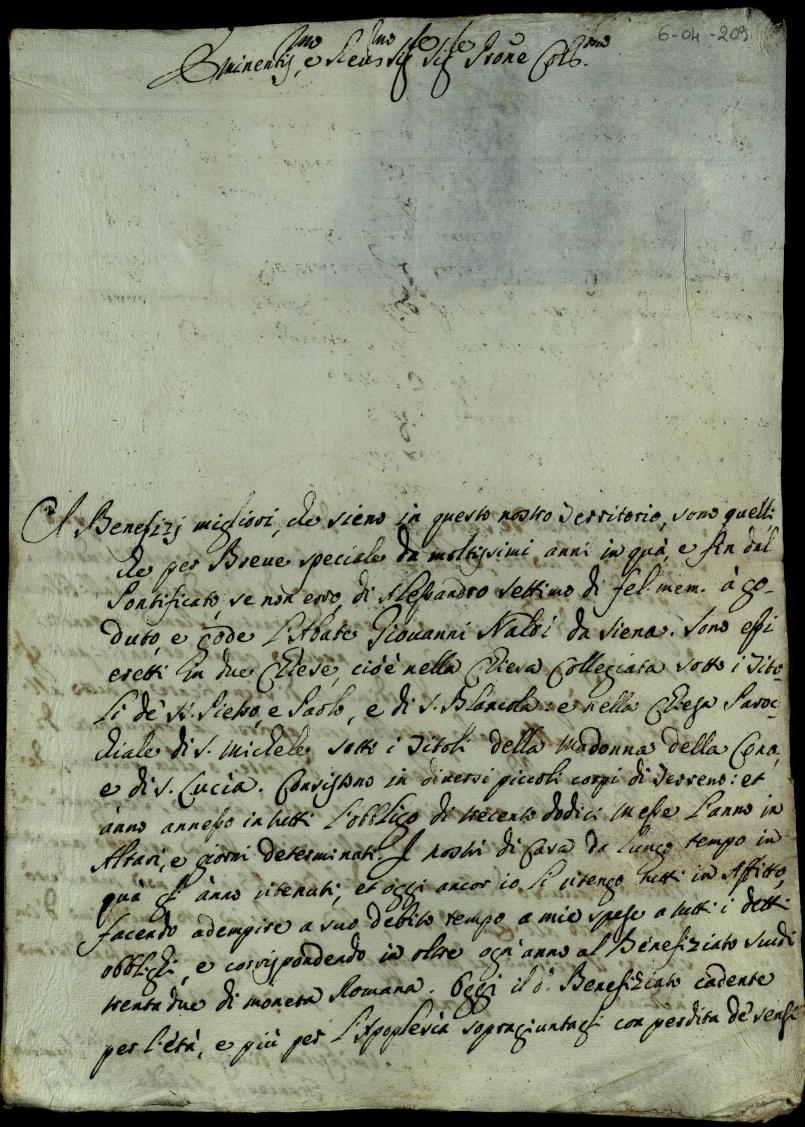 6-04-209
Eminentis.mo e Reu.mo Sig.re Sig.re Prone Col.mo
I Benefizj migliori, che sieno in questo nostro Territorio, sono quelli
che per Breue speciale da moltissimi anni in quà, e fin dal
Pontificato, se non erro, di Alessandro settimo di fel: mem. à go-
duto, e gode l'Abate Giouanni Naldi da Siena. Sono essi
eretti in due Chiese, cioè nella Chiesa Collegiata sotto i Tito-
li de' SS. Pietro, e Paolo, e di S. Biancola: e nella Chiesa Paroc-
chiale di S. Michele sotto i Titoli della Madonna della Cona,
e di S. Lucia. Consistono in diuersi piccoli corpi di Terreno: et
ànno annesso in tutti l'obbligo di trecento dodici Messe l'anno in
Altari, e giorni determinati. I nostri di Casa da lungo tempo in
quà gl'ànno ritenuti, et oggi ancor io li ritengo tutti in Affitto,
facendo adempire a suo debito tempo a mie spese a tutti i detti
obblighi, e corrispondendo in oltre ogn'anno al Benefiziato scudi
trenta due di moneta Romana. Oggi il d.º Benefiziato cadente
per l'età, e più per l'Apoplesia sopragiuntagli con perdita de' sensi